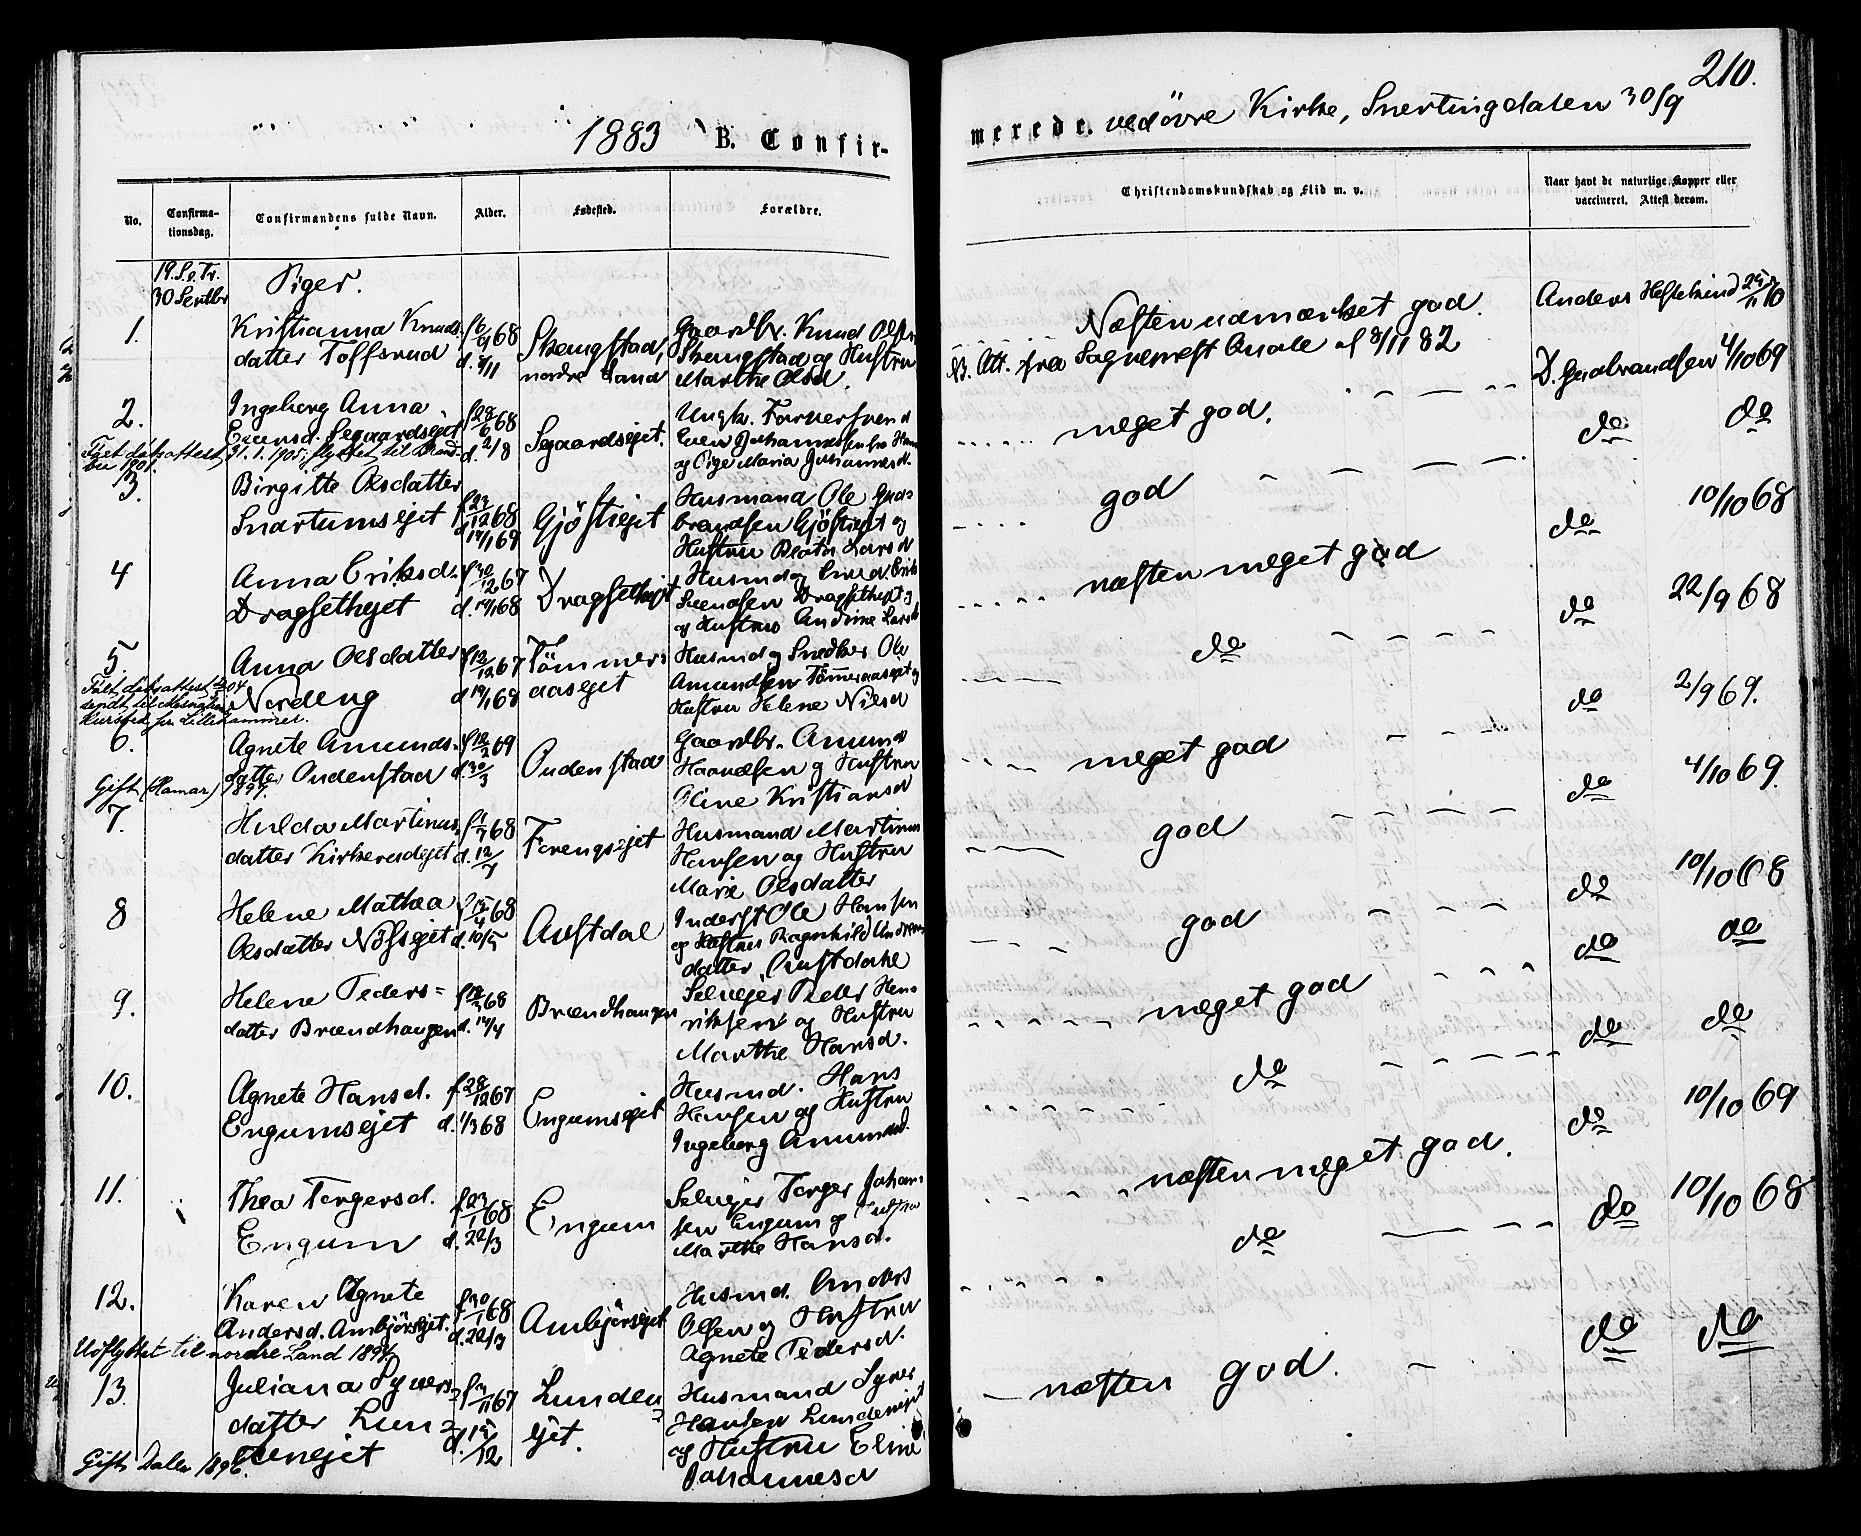 1883 B. Confir-
merede. ved övre Kirke, Snertingdalen 30/9
210.
No.
Confirma-
tionsdag.
Confirmandens fulde Navn.
Alder.
Fødested.
Forældre.
Christendomskundskab og Flid m. v.
Naar havt de naturlige Kopper eller
vaccineret. Attest derom.
19. S. e. Tr.
30 Septbr
Piger.
1.
Kristianna Knuds-
datter Toffsrud
f. 6/9 68
d. 8/11
Skeugstad,
nordre Land
Gaardbr. Knud Olsen
Skeugstad og Hustru
Marthe Olsd.
Næsten udmærket god.
NB. Att. fra Sognepræst Onsale af 8/11 82
Anders Heftekind 25/11 70
2.
Ingeborg Anna
Evensd. Segaardsejet
f. 28/6 68
d. 2/8
Segaardsejet.
Ungk. Forverfvend
Even Johannesen
og Pige Maria Johannesd.
meget god.
D. Gudbrandsen 4/10 69
Født døbsattest 31.1.1905, flyttet til
3.
Birgitte Olsdatter
Snartumsejet
f. 23/12 68
d. 17/1 69
Gjöstiejet
Husmand Ole Gud-
brandsen Gjöstiejet og
Hustru Beate Larsd
god
do do
4
Anna Eriksd.
Dragsethejet
f. 30/12 67
d. 19/1 68
Dragsethejet
Husmd og Smed Erik
Svendsen Dragsethejet
og Hustru Andrine Larsd
næsten meget god
do 10/10 68
5.
Anna Olsdatter
Nordeng
f. 12/12 67
d. 19/1 68
Tömmer-
aasejet
Husmd og Snedker Ole
Amundsen Tömmeraasejet og
Hustru Helene Nilsd
do
do 22/9 68
6.
Agnete Amunds-
datter Oudenstad
f. 10/2 69
d. 30/3
Oudenstad
Gaardbr. Amund
Haagensen og Hustru
Oline Kristiansd
meget god
do 2/9 69.
Gift (Hamar) 1897.
7.
Hulda Martinus-
datter Kirkerudejet
f. 1/3 68
d. 12/4
Forengsejet
Husmand Martinus
Hansen og Hustru
Marie Olsdatter
god
do 4/10 69.
8
Helene Mathea
Olsdatter Nössejet
f. 15/4 68
d. 10/5
Austdal
Inderst Ole Hansen
og Hustru Ragnhild Anders-
datter, Austdalse
god
do 10/10 68
9.
Helene Peders-
datter Brændhaugen
f. 12/3 68
d. 14/4
Brændhaugen
Selvejer Peder Hen-
riksen og Hustru
Marthe Hansd.
meget god
do do
10.
Agnete Hansd.
Engumsejet
f. 28/12 67
d. 1/3 68
Engumsejet
Husmd. Hans
Hansen og Hustru
Ingeborg Amundsd.
do
do do
11.
Thea Torgersd.
Engum
f. 23/1 68
d. 22/3
Engum
Selvejer Torger Johan-
sen Engum og Hustru
Marthe Hansd.
næsten meget god.
do 10/10 69
12.
Karen Agnete
Andersd. Ambjörsejet.
f. 30/1 68
d. 22/3
Ambjörsejet
Husmd. Anders
Olsen og Hustru
Agnete Pedersd.
do
do 10/10 68
Udflyttet til nordre Land 1894.
13.
Juliana Syvers-
datter Lun-
denejet
f. 3/11 67
d. 15/12
Lunden-
ejet.
Husmand Syver
Hansen Lundenejet
og Hustru Eline
Johannesd
næsten god.
do do
Gift Dalen 1896.